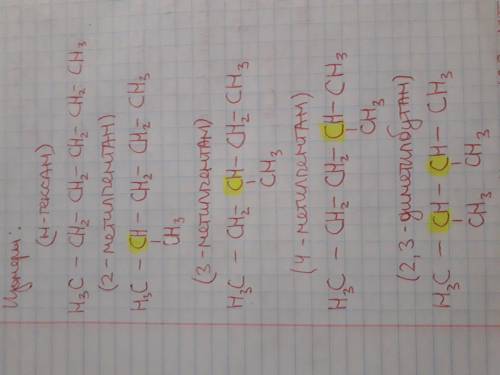 Изомеры:
(н-гексан)
H₃C – CH₂ – CH₂ – CH₂ – CH₂ – CH₃
(2-метилпентан)
H₃C – CH – CH₂ – CH₂ – CH₃
CH₃
(3-метилпентан)
H₃C – CH₂ – CH – CH₂ – CH₃
CH₃
(4-метилпентан)
H₃C – CH₂ – CH₂ – CH – CH₃
CH₃
(2,3-диметилбутан)
H₃C – CH – CH – CH₃
CH₃ CH₃